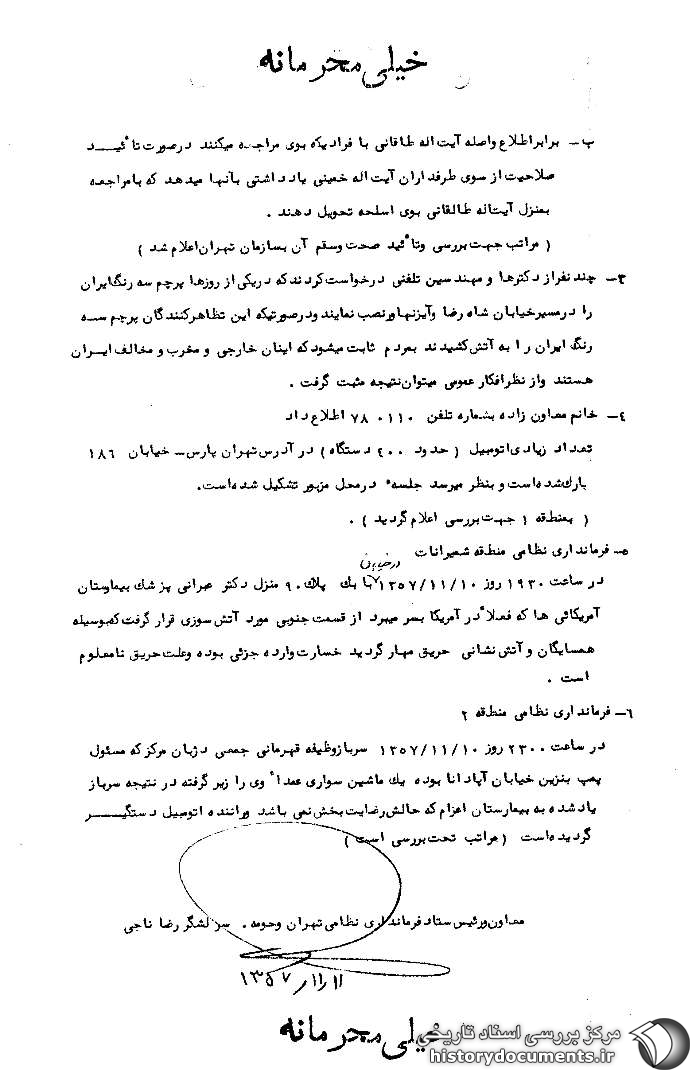 خیلی محرمانه
ب- برابر اطلاع واصله آیت اله طاقانی با فرادیکه بوی مراجعه میکنند درصورت تائید
صلاحیت از سوی طرفداران آیت اله خمینی یادداشتی بآنها میدهد که بامراجعه
بمنزل آیتاله طالقانی بوی اسلحه تحویل دهند .
( مراتب جهت بررسی وتائید صحت وسقم آن بسازمان تهران اعلام شد )
۳- چند نفر از دکترها و مهندسین تلفنی درخواست کردند که در یکی از روزها پرچم سه رنگ ایران
را در مسیر خیابان شاه رضا وآیزنهاور نصب نمایند ودرصورتیکه این تظاهر کنندگان پرچم سه
رنگ ایران را به آتش کشیدند بمردم ثابت میشود که اینان خارجی و مخرب و مخالف ایران
هستند واز نظر افکار عمومی میتوان نتیجه مثبت گرفت .
٤- خانم معاون زاده بشماره تلفن ۷۸۰۱۱۰ اطلاع داد
تعداد زیادی اتومبیل ( حدود ۲۰۰ دستگاه ) در آدرس تهران پارس- خیابان ۱۸٦
پارک شده است و بنظر میرسد جلسه ای در محل مزبور تشکیل شده است.
( بمنطقه ۱ جهت بررسی اعلام گردید ) .
۵- فرمانداری نظامی منطقه شمیرانات
در خیابان
در ساعت ۱۹۳۰ روز ۱۳۵۷/۱۱/۱۰ بابک پلاک ۹۰ منزل دکتر عمرانی پزشک بیمارستان
آمریکائی ها که فعلاً در آمریکا بسر میبرد از قسمت جنوبی مورد آتش سوزی قرار گرفت که بوسیله
همسایگان و آتش نشانی حریق مهار گردید خسارت وارده جزئی بوده وعلت حریق نامعلوم
است .
٦- فرمانداری نظامی منطقه ۲
در ساعت ۲۳۰۰ روز ۱۳۵۷/۱۱/۱۰ سرباز وظیفه قهرمانی جمعی دژبان مرکز که مسئول
پمپ بنزین خیابان آپادانا بوده یک ماشین سواری عمداً وی را زیر گرفته در نتیجه سرباز
یاد شده به بیمارستان اعزام که حالش رضایت بخش نمی باشد وراننده اتومبیل دستگیر
گردیده است ( مراتب تحت بررسی است )
معاون ورئیس ستاد فرمانداری نظامی تهران وحومه . سرلشگر رضا ناجی
۱۳۵۷/۱۱/۱۱
خیلی محرمانه
مرکز بررسی اسناد تاریخی
historydocuments.ir